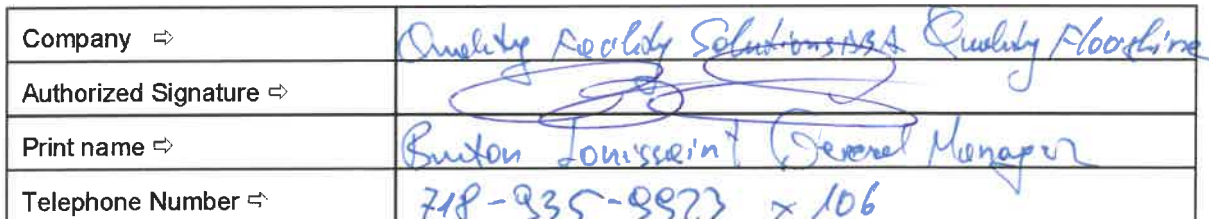 Company ⇨ Quality Facility Solutions ABA Quality Floorshine
Authorized Signature ⇨
Print name ⇨ Buxton Louissaint General Manager
Telephone Number ⇨ 718-935-9923 x 106